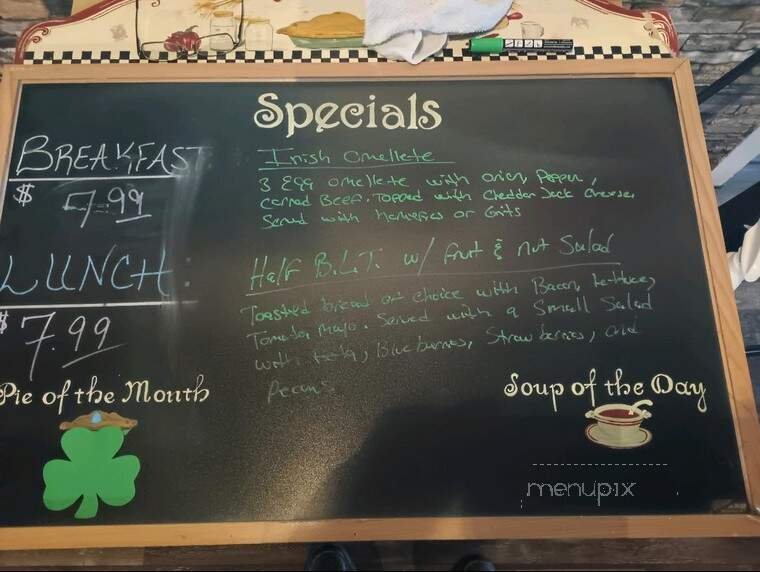 Specials
BREAKFAST:
$ 7.99
Irish Omellete
3 Egg omellete with onion, Pepper,
corned Beef. Topped with Cheddar Jack cheese,
Served with Homefries or Grits
LUNCH:
$ 7.99
Half B.L.T. w/ fruit & nut Salad
Toasted bread of choice with Bacon, Lettuce,
Tomato, Mayo. Served with a Small Salad
with feta, Blueberries, Strawberries, and
Pecans
Pie of the Month
Soup of the Day
menupix